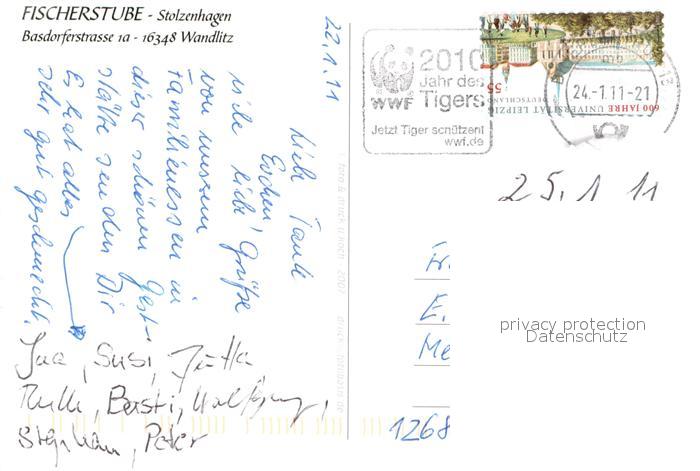 FISCHERSTUBE - Stolzenhagen
Basdorferstrasse 1a - 16348 Wandlitz
22.1.11
Liebe Tante
Evchen! Grüße
viele liebe
von unserem
Familienessen in
dieser schönen Gast-
stätte senden Dir
Es hat alles
sehr gut geschmeckt.
Susi, Jutta
Basti, Wolfgang,
Stephan, Peter
foto & druck u.koch 2007
WWF
2010
Jahr des
Tigers
Jetzt Tiger schützen!
wwf.de
600 JAHRE UNIVERSITÄT LEIPZIG
DEUTSCHLAND
55
24.-1.11-21
25.1 11
Fr.
E.
Me
1268
privacy protection
Datenschutz